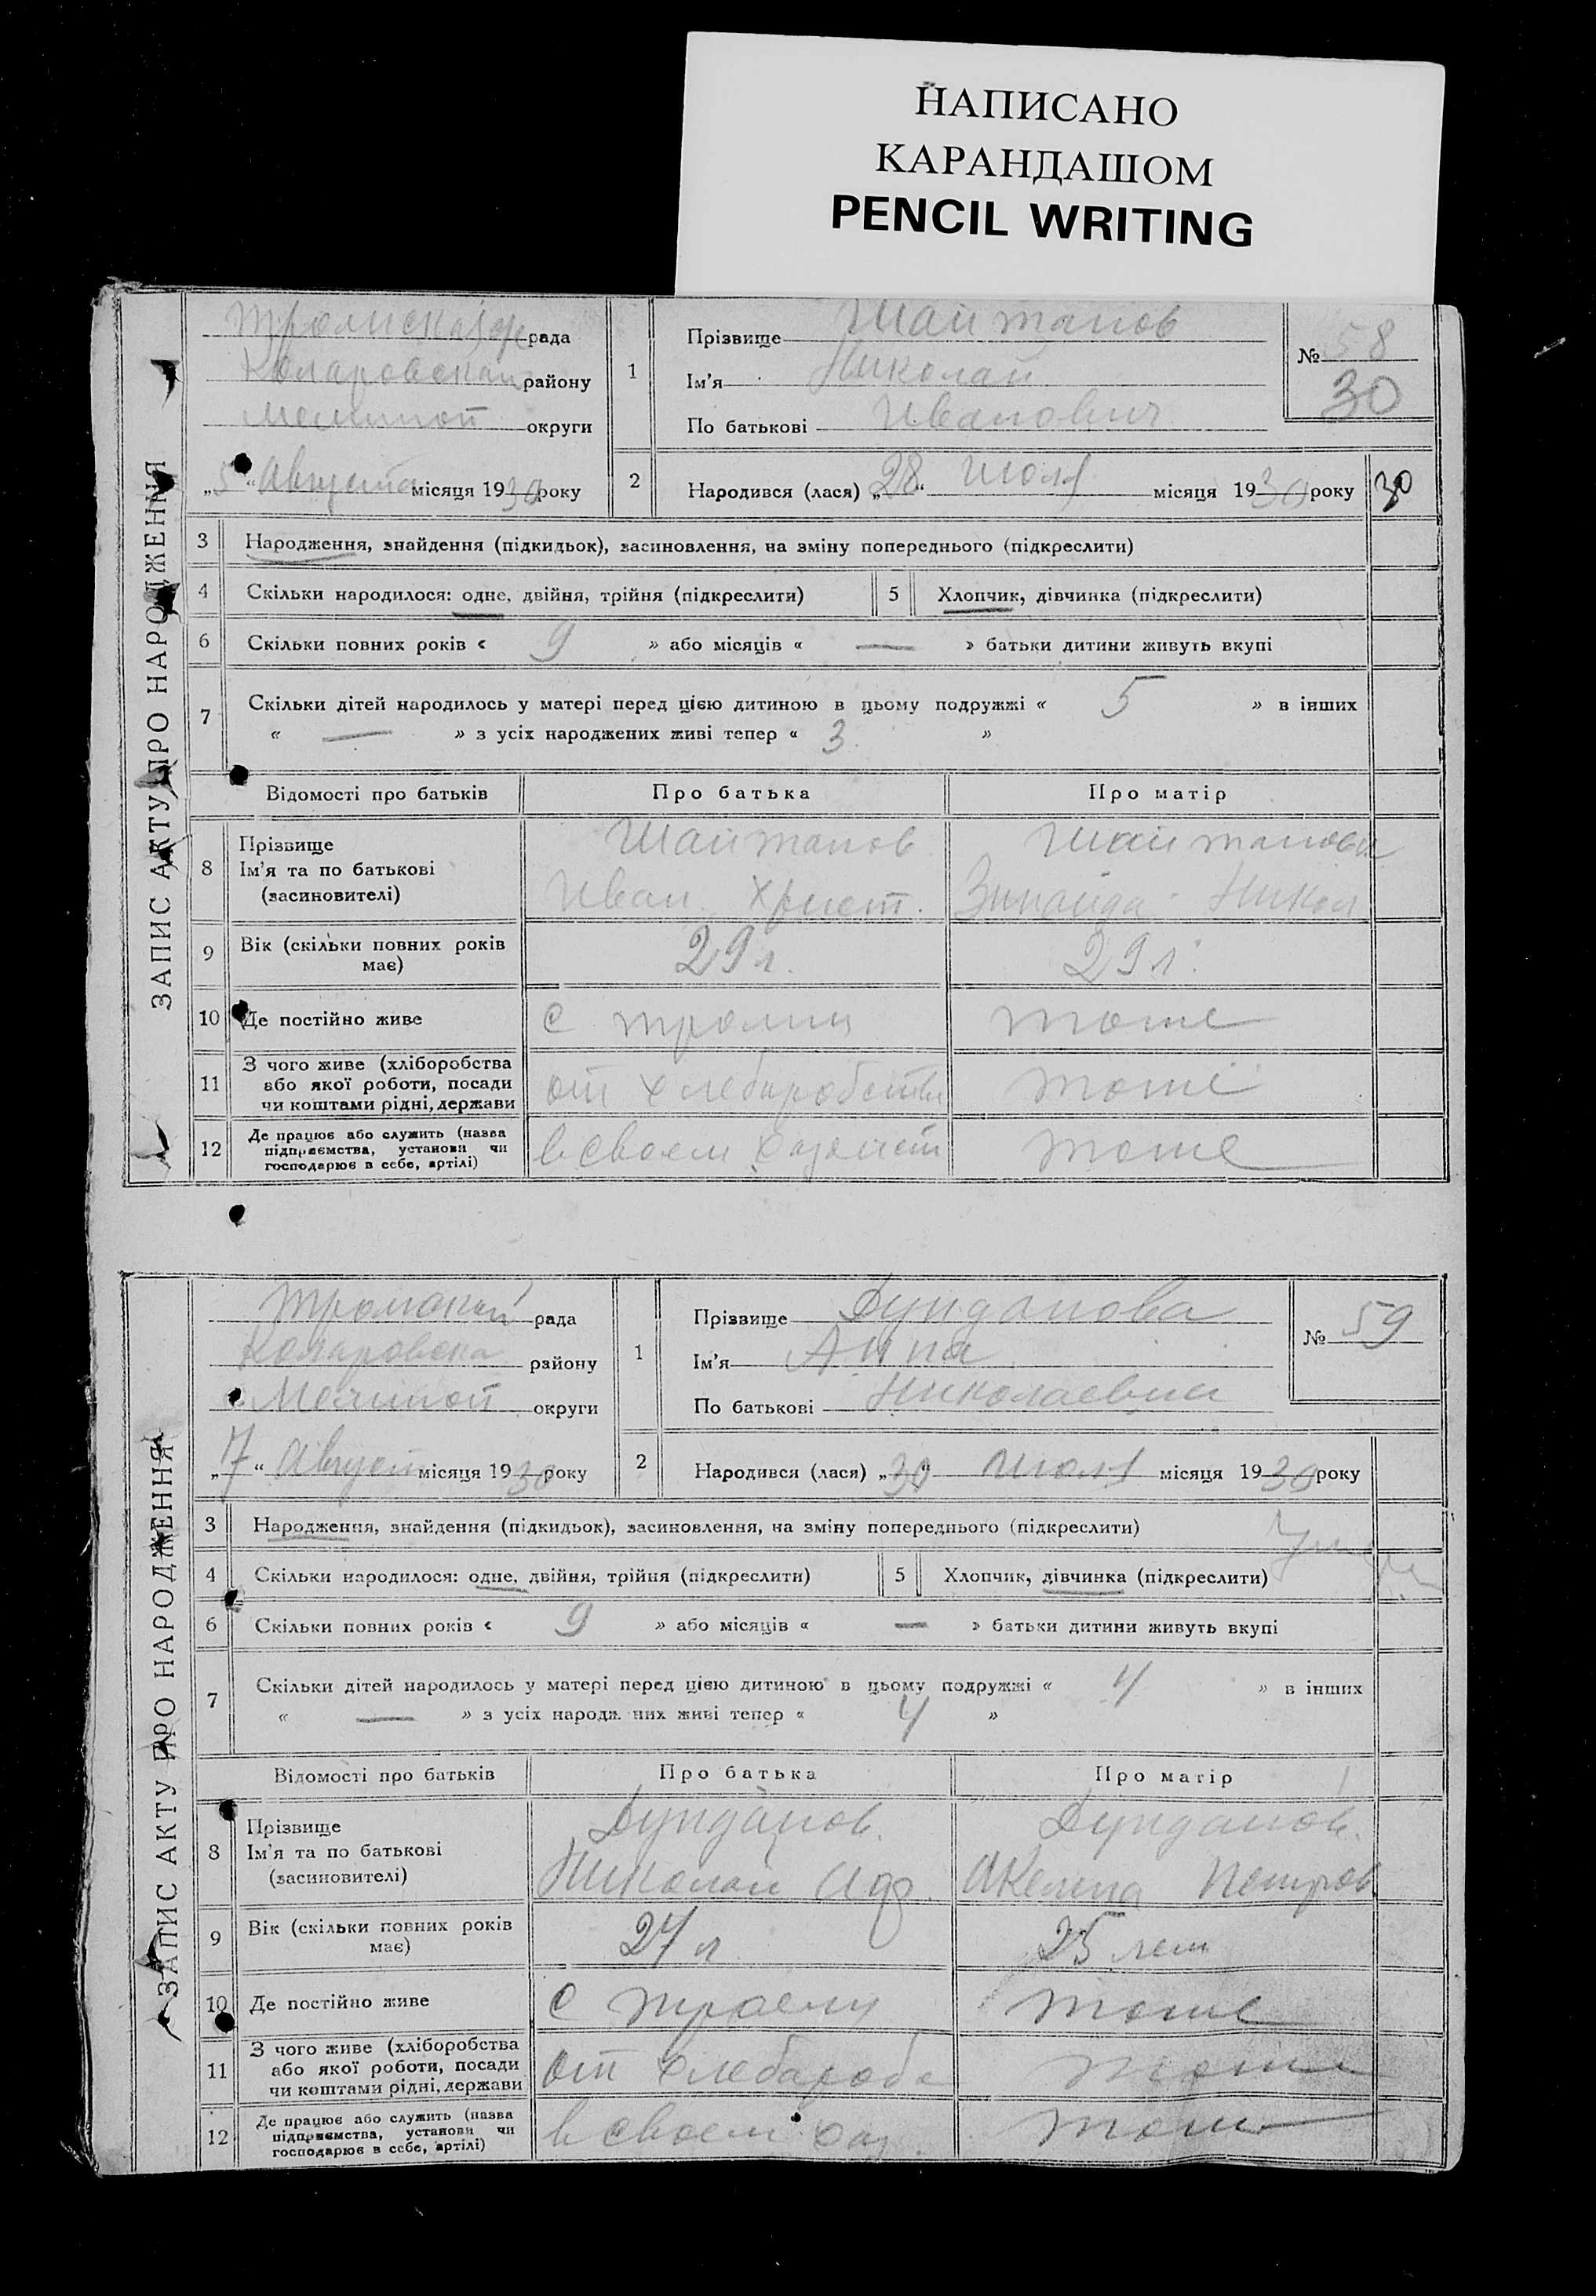 НАПИСАНО
КАРАНДАШОМ
PENCIL WRITING
ЗАПИС АКТУ ПРО НАРОДЖЕННЯ
рада
Коларовский району
Мелитоп округи
„5“ Августа місяця 1930 року
1
Прізвище Шайтанов
Ім'я Николай
По батькові Иванович
№ 58
30
2
Народився (лася) „28“ июля місяця 1930 року
30
3 Народження, знайдення (підкидьок), засиновлення, на зміну попереднього (підкреслити)
4 Скільки народилося: одне, двійня, трійня (підкреслити) 5 Хлопчик, дівчинка (підкреслити)
6 Скільки повних років « 9 » або місяців « — » батьки дитини живуть вкупі
7 Скільки дітей народилось у матері перед цією дитиною в цьому подружжі « 5 » в інших
« — » з усіх народжених живі тепер « 3 »
Відомості про батьків Про батька Про матір
8 Прізвище
Ім'я та по батькові
(засиновителі)
Шайтанов
Иван Христ.
Шайтанова
Зинаида Никол
9 Вік (скільки повних років
має)
29 л. 29 л.
10 Де постійно живе с Трояны тоже
11 З чого живе (хліборобства
або якої роботи, посади
чи коштами рідні, держави
от хлеборобства тоже
12 Де працює або служить (назва
підприємства, установи чи
господарює в себе, артілі)
в своем хозяйст тоже
ЗАПИС АКТУ ПРО НАРОДЖЕННЯ
рада
Коларовска району
Мелитоп округи
„7“ Август місяця 1930 року
1
Прізвище Дунданова
Ім'я Анна
По батькові Николаевна
№ 59
2
Народився (лася) „30“ июля місяця 1930 року
3 Народження, знайдення (підкидьок), засиновлення, на зміну попереднього (підкреслити)
4 Скільки народилося: одне, двійня, трійня (підкреслити) 5 Хлопчик, дівчинка (підкреслити)
6 Скільки повних років « 9 » або місяців « — » батьки дитини живуть вкупі
7 Скільки дітей народилось у матері перед цією дитиною в цьому подружжі « 4 » в інших
« — » з усіх народж них живі тепер « 4 »
Відомості про батьків Про батька Про матір
8 Прізвище
Ім'я та по батькові
(засиновителі)
Дунданов.
Николай
Дунданов.
Петров
9 Вік (скільки повних років
має)
27 л 25 лет
10 Де постійно живе с Трояны тоже
11 З чого живе (хліборобства
або якої роботи, посади
чи коштами рідні, держави
от хлебароб тоже
12 Де працює або служить (назва
підприємства, установи чи
господарює в себе, артілі)
в своем хаз. тоже